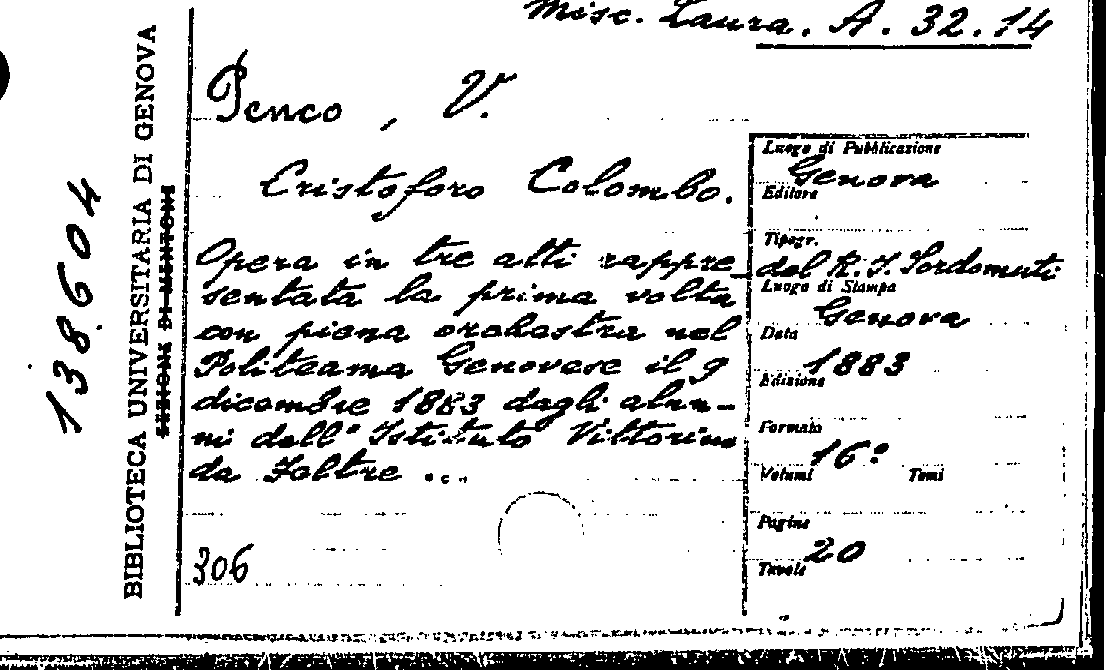 Misc. Laura. A. 32.14
Penco, V.
Cristoforo Colombo.
Opera in tre atti rappre-
sentata la prima volta
con piena orchestra nel
Politeama Genovese il 9
dicembre 1883 dagli alun-
ni dell'Istituto Vittorino
da Feltre ...
306
Luogo di Pubblicazione
Genova
Editore
Tipogr.
del R. I. Sordomuti
Luogo di Stampa
Genova
Data
1883
Edizione
Formato
16°
Volumi Tomi
Pagine
20
Tavole
BIBLIOTECA UNIVERSITARIA DI GENOVA
138.604